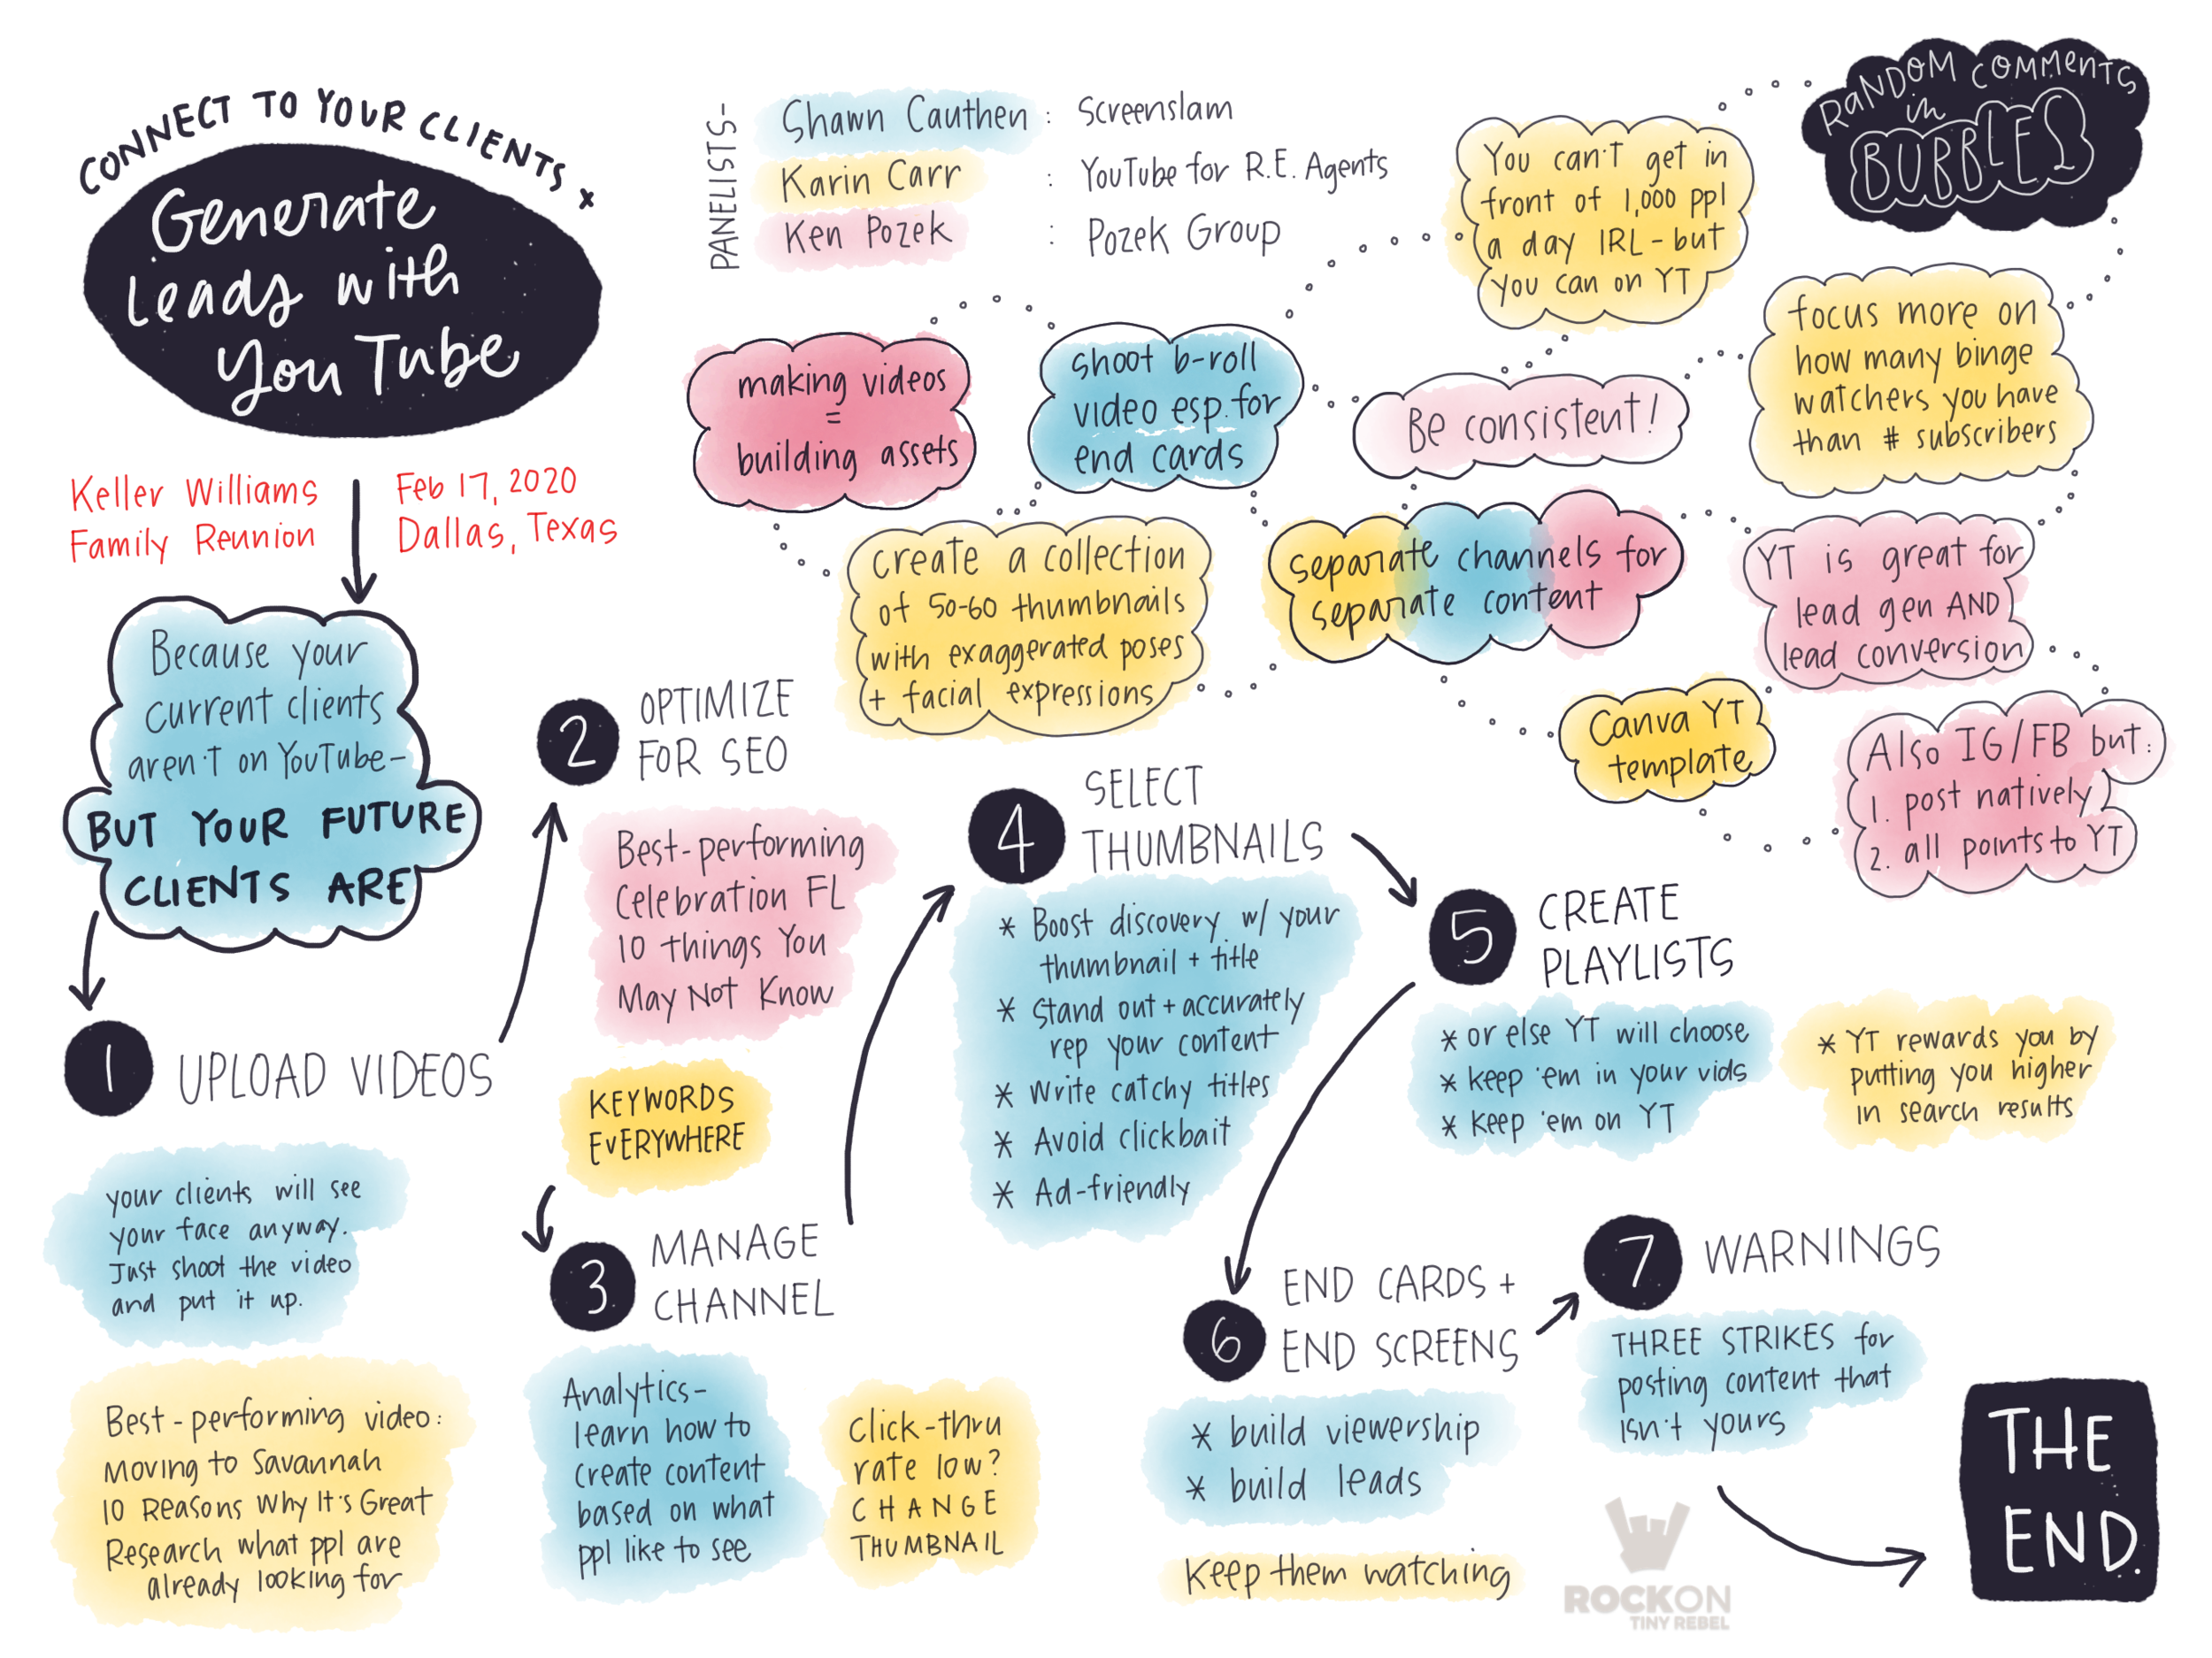 CONNECT TO YOUR CLIENTS x
Generate
Leads with
YouTube
Keller Williams
Family Reunion
Feb 17, 2020
Dallas, Texas
PANELISTS-
Shawn Cauthen : Screenslam
Karin Carr : YouTube for R.E. Agents
Ken Pozek : Pozek Group
RANDOM COMMENTS
in
BUBBLES
You can't get in
front of 1,000 ppl
a day IRL - but
you can on YT
focus more on
how many binge
watchers you have
than # subscribers
making videos
=
building assets
shoot b-roll
video esp. for
end cards
Be consistent!
create a collection
of 50-60 thumbnails
with exaggerated poses
+ facial expressions
separate channels for
separate content
YT is great for
lead gen AND
lead conversion
Canva YT
template
Also IG/FB but:
1. post natively
2. all points to YT
Because your
current clients
aren't on YouTube-
BUT YOUR FUTURE
CLIENTS ARE
1 UPLOAD VIDEOS
your clients will see
your face anyway.
Just shoot the video
and put it up.
Best-performing video:
Moving to Savannah
10 Reasons Why It's Great
Research what ppl are
already looking for
2 OPTIMIZE
FOR SEO
Best-performing
Celebration FL
10 Things You
May Not Know
KEYWORDS
EVERYWHERE
3 MANAGE
CHANNEL
Analytics-
learn how to
create content
based on what
ppl like to see
Click-thru
rate low?
CHANGE
THUMBNAIL
4 SELECT
THUMBNAILS
* Boost discovery w/ your
thumbnail + title
* Stand out + accurately
rep your content
* Write catchy titles
* Avoid clickbait
* Ad-friendly
5 CREATE
PLAYLISTS
* or else YT will choose
* keep 'em in your vids
* keep 'em on YT
* YT rewards you by
putting you higher
in search results
6 END CARDS +
END SCREENS
* build viewership
* build leads
Keep them watching
7 WARNINGS
THREE STRIKES for
posting content that
isn't yours
ROCKON
TINY REBEL
THE
END.